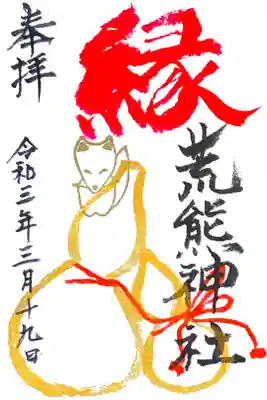 奉拝
縁
荒熊神社
令和三年三月十九日